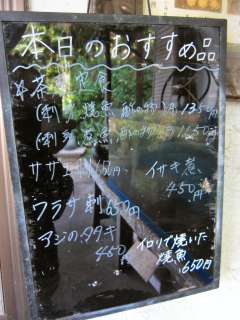 本日のおすすめ品
(刺身 焼魚 酢の物) 1350円
(刺身 煮魚 酢の物) 1650円
サザエ刺
イサキ煮
450円
ウラサ刺 650円
アジのタタキ
450
イロリで焼いた
焼魚
650円